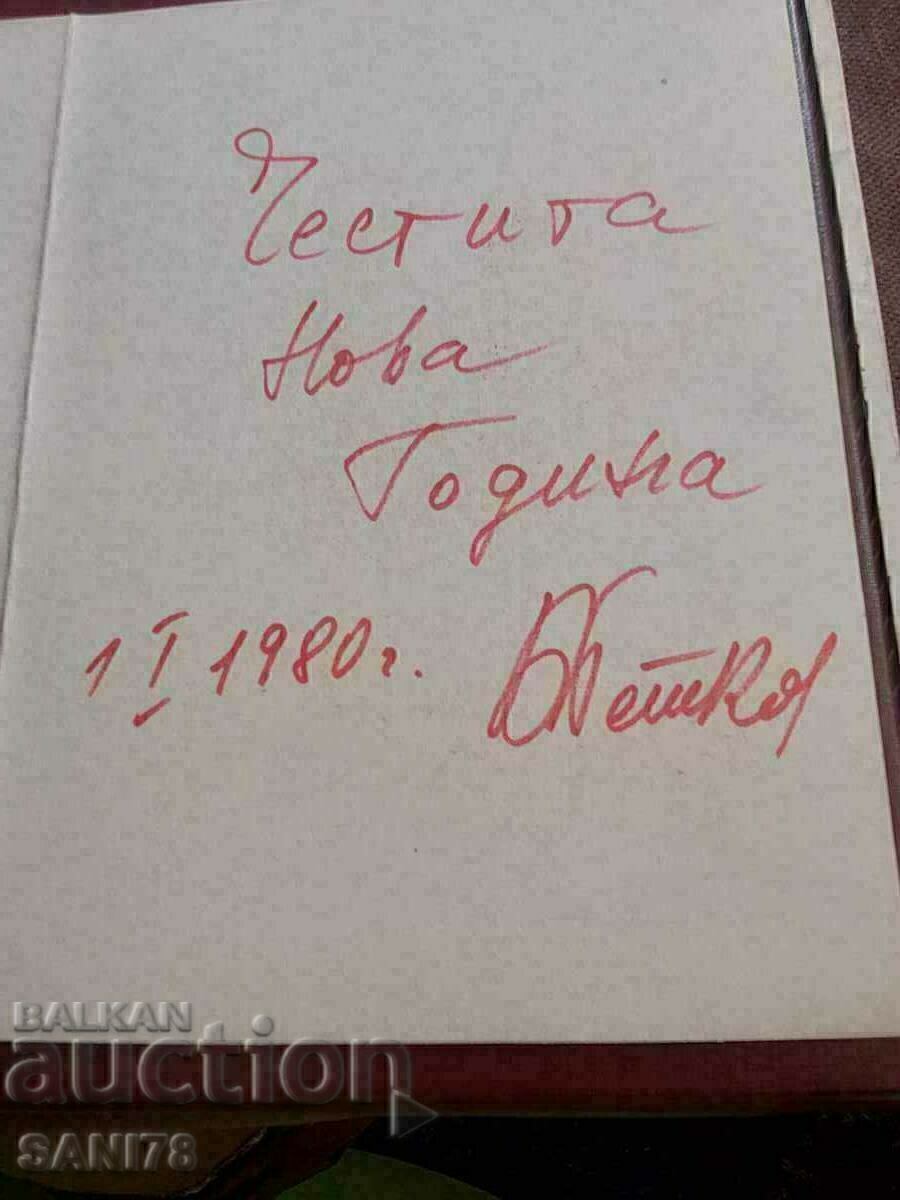 Честита
Нова
Година
1 I 1980г.
Петков
BALKAN
auction
SANI78